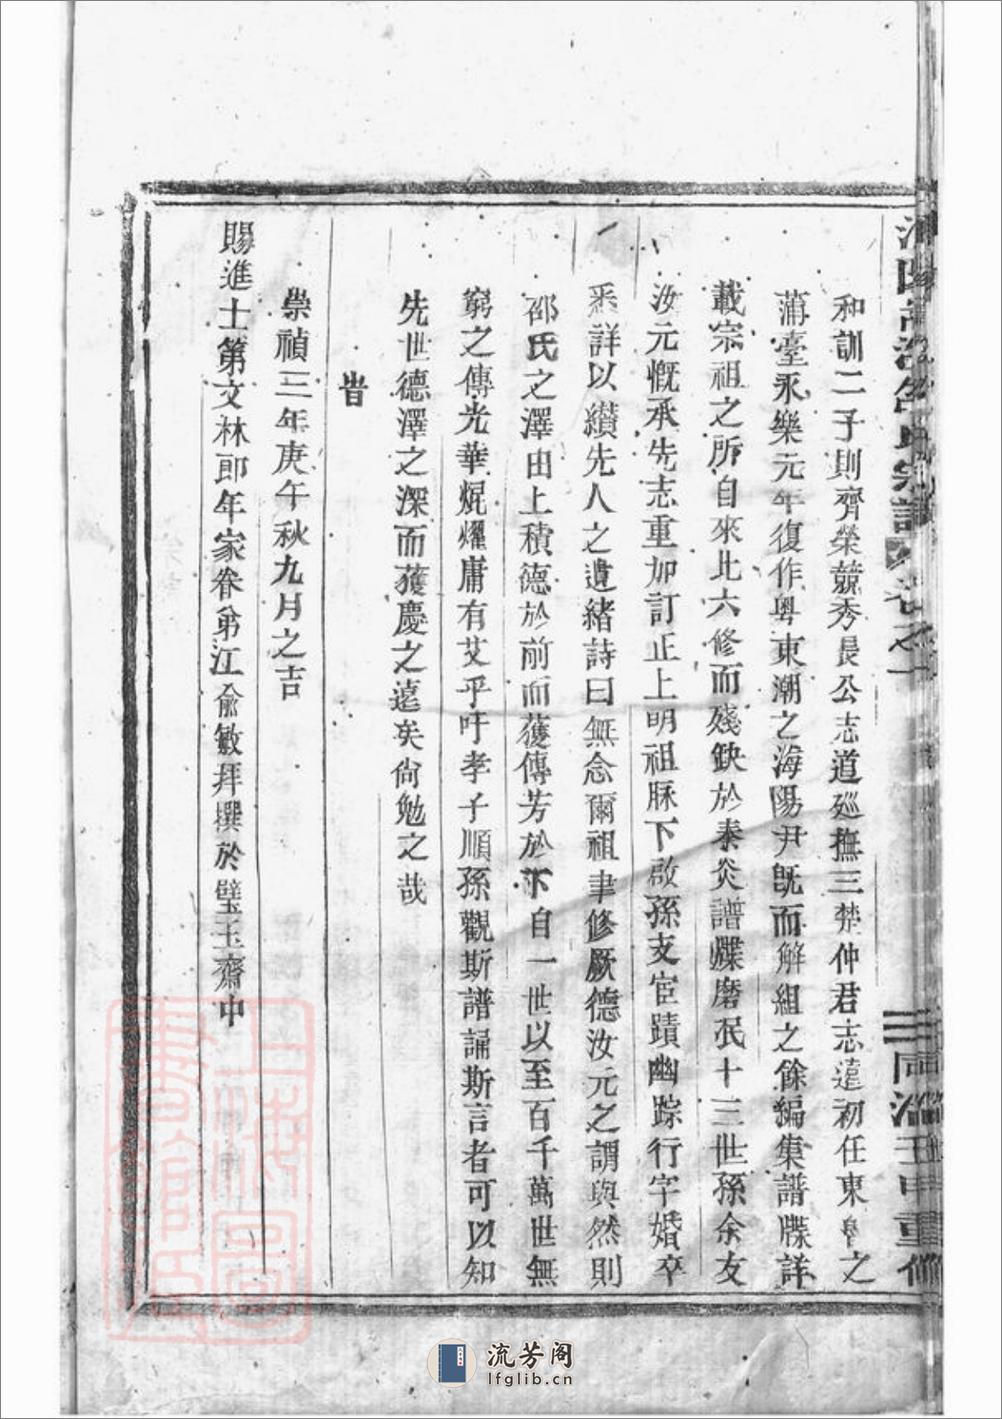 和訓二子則齊榮競秀長公志道廵撫三楚仲君志遠初任東魯之
蒲臺永樂元年復作粤東潮之海陽尹旣而解組之餘編集譜牒詳
載宗祖之所自來比六修而殘缺於秦炎譜牒磨泯十三世孫余友
汝元慨承先志重加訂正上明祖脉下啟孫支宦蹟幽踪行字婚卒
悉詳以纉先人之遺緒詩曰無念爾祖聿修厥德汝元之謂與然則
邵氏之澤由上積德於前而獲傳芳於下自一世以至百千萬世無
窮之傳光華焜燿庸有艾乎吁孝子順孫觀斯譜誦斯言者可以知
先世德澤之深而獲慶之遠矣尙勉之哉
旹
崇禎三年庚午秋九月之吉
賜進士第文林郎年家眷弟江俞敏拜撰於璧玉齋中
氏宗譜 卷之一
三 同治壬申重修
上海圖書館藏
流芳阁
lfglib.cn